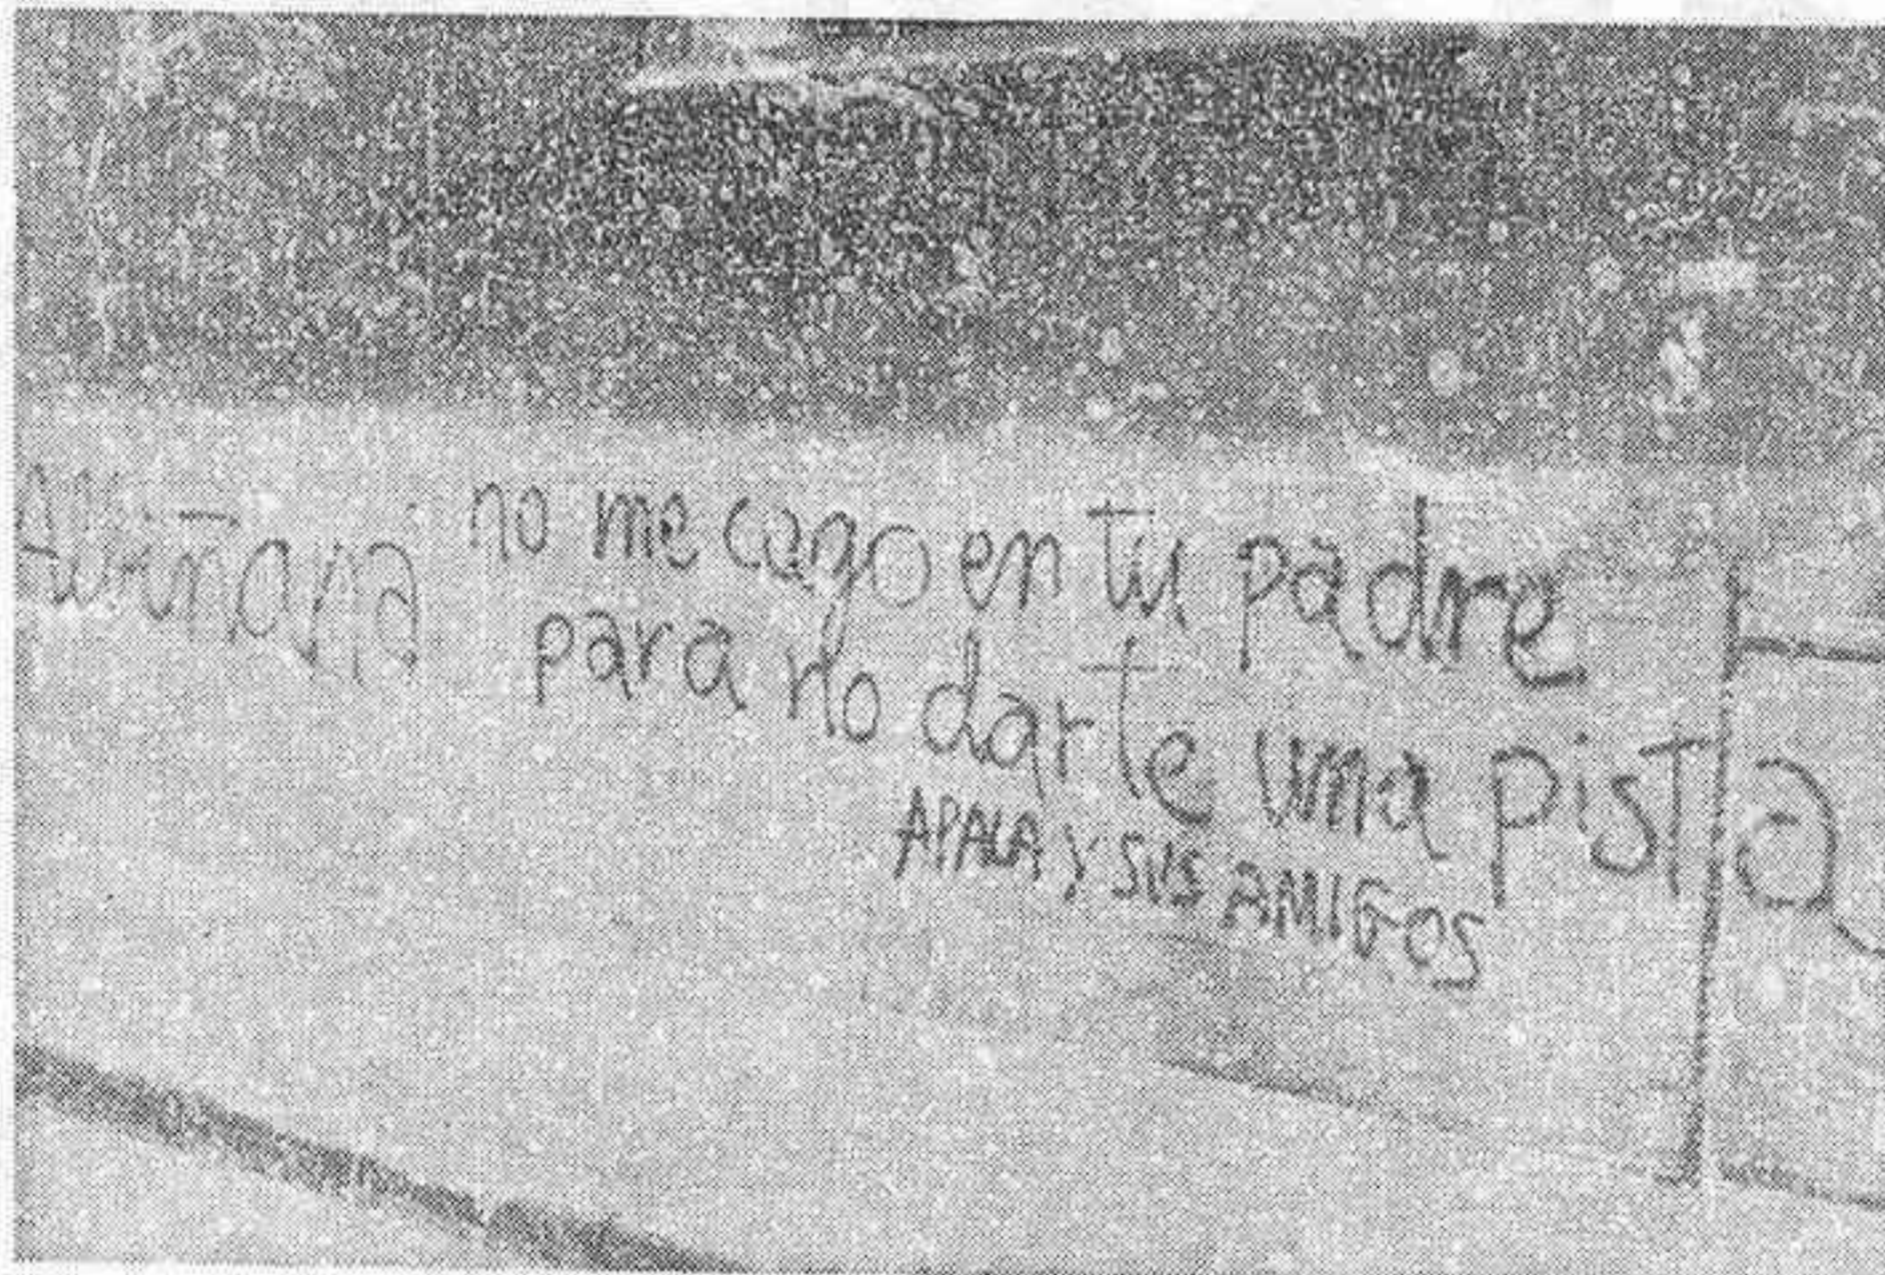 no me cago en tu padre
para no darte una pista
APALA Y SUS AMIGOS